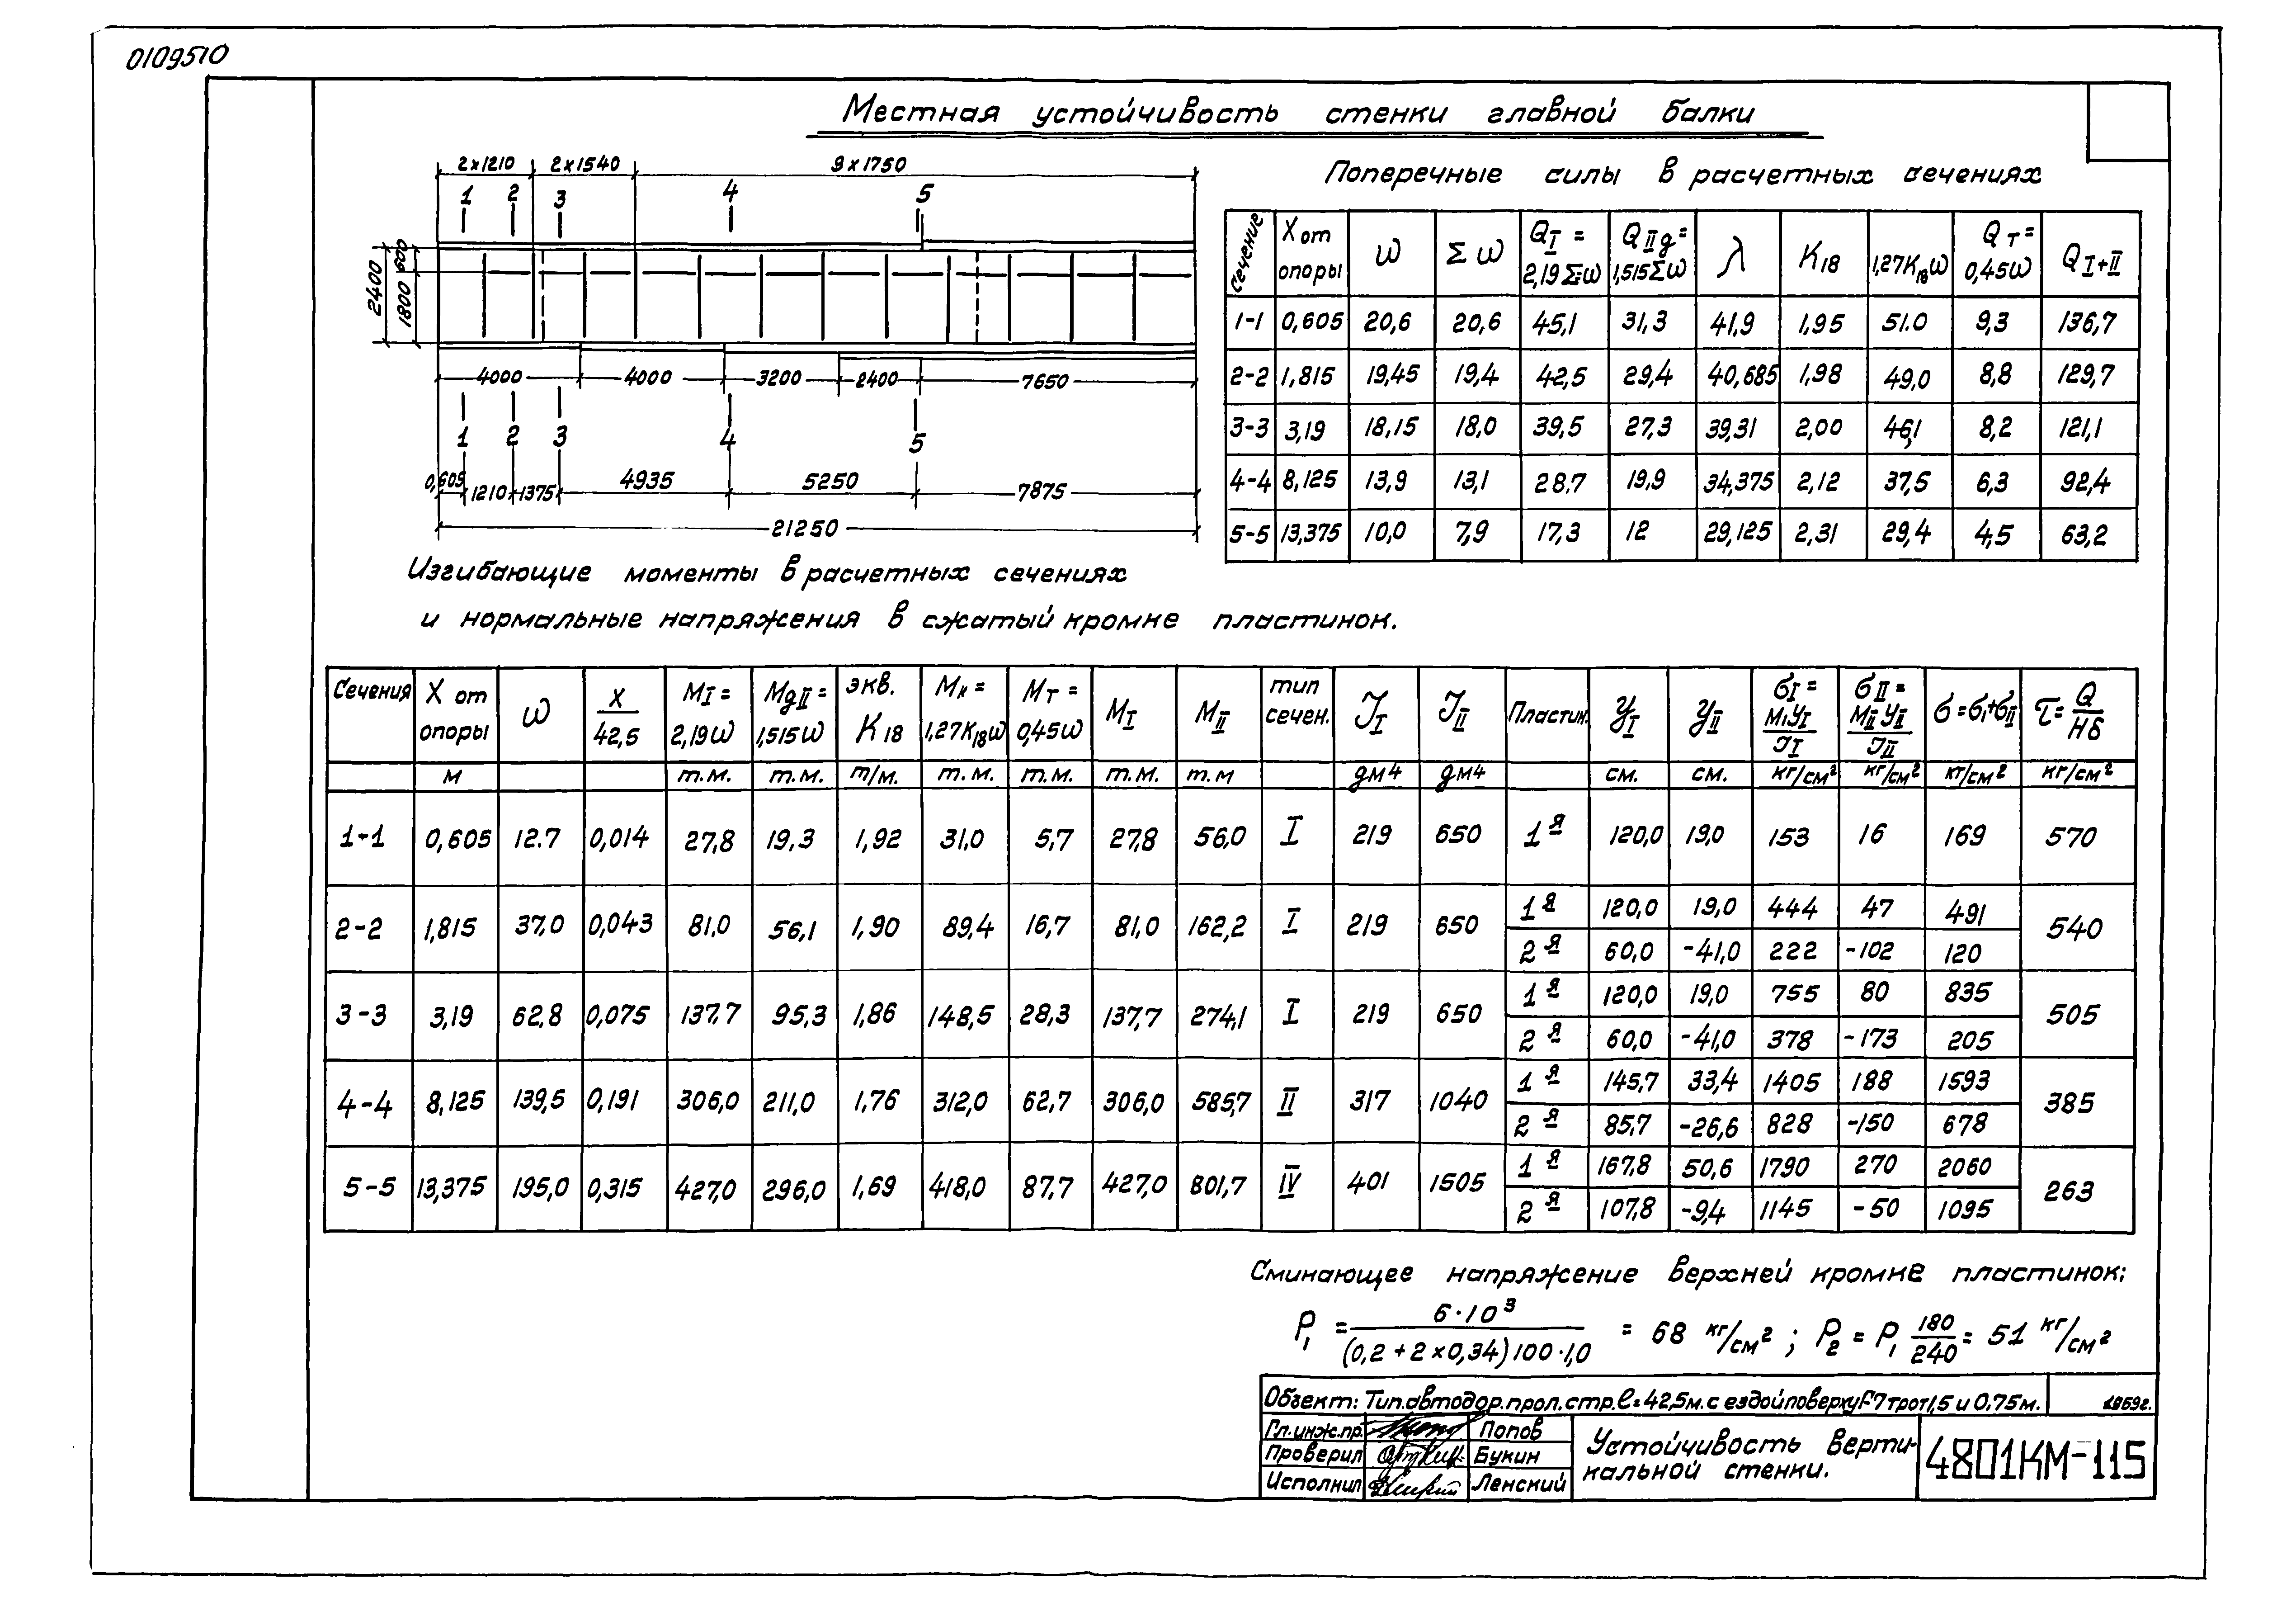 0109510
Местная устойчивость стенки главной балки
2x1210 2x1540 9x1750
1 2 3 4 5
2400 600 1800
4000 4000 3200 2400 7650
1 2 3 4 5
0,605 1210 1375 4935 5250 7875
21250
Поперечные силы в расчетных сечениях
сечение X от опоры ω Σω QI = 2,19Σω QIIд = 1,515Σω λ K18 1,27K18ω QT = 0,45ω QI+II
1-1 0,605 20,6 20,6 45,1 31,3 41,9 1,95 51.0 9,3 136,7
2-2 1,815 19,45 19,4 42,5 29,4 40,685 1,98 49,0 8,8 129,7
3-3 3,19 18,15 18,0 39,5 27,3 39,31 2,00 46,1 8,2 121,1
4-4 8,125 13,9 13,1 28.7 19,9 34,375 2,12 37,5 6,3 92,4
5-5 13,375 10,0 7,9 17,3 12 29,125 2,31 29,4 4,5 63,2
Изгибающие моменты в расчетных сечениях
и нормальные напряжения в сжатый кромке пластинок.
Сечения X от опоры ω X/42,5 MI = 2,19ω MдII = 1,515ω экв. K18 Mк = 1,27K18ω MT = 0,45ω MI MII тип сечен. JI JII Пластин. yI yII σI = MIyI/JI σII = MIIyII/JII σ=σI+σII τ = Q/Hδ
м т.м. т.м. т/м. т.м. т.м. т.м. т.м дм4 дм4 см. см. кг/см² кг/см² кг/см² кг/см²
1-1 0,605 12.7 0,014 27,8 19,3 1,92 31,0 5,7 27,8 56,0 I 219 650 1я 120,0 19,0 153 16 169 570
2-2 1,815 37,0 0,043 81,0 56,1 1,90 89,4 16,7 81,0 162,2 I 219 650 1я 120,0 19,0 444 47 491 540
2я 60,0 -41,0 222 -102 120
3-3 3,19 62,8 0,075 137,7 95,3 1,86 148,5 28,3 137,7 274,1 I 219 650 1я 120,0 19,0 755 80 835 505
2я 60,0 -41,0 378 -173 205
4-4 8,125 139,5 0,191 306,0 211,0 1,76 312,0 62,7 306,0 585,7 II 317 1040 1я 145,7 33,4 1405 188 1593 385
2я 85,7 -26,6 828 -150 678
5-5 13,375 195,0 0,315 427,0 296,0 1,69 418,0 87,7 427,0 801,7 IV 401 1505 1я 167,8 50,6 1790 270 2060 263
2я 107,8 -9,4 1145 -50 1095
Сминающее напряжение верхней кромке пластинок:
P1 = 6·10³/(0,2+2x0,34)100·1,0 = 68 кг/см²; P2 = P1 180/240 = 51 кг/см²
Объект: Тип.автодор.прол.стр. ℓ=42,5м.с ездой поверху Г-7 трот 1,5 и 0,75м. 1959г.
Гл.инж.пр. Попов
Проверил Букин
Исполнил Ленский
Устойчивость верти-
кальной стенки.
4801КМ-115